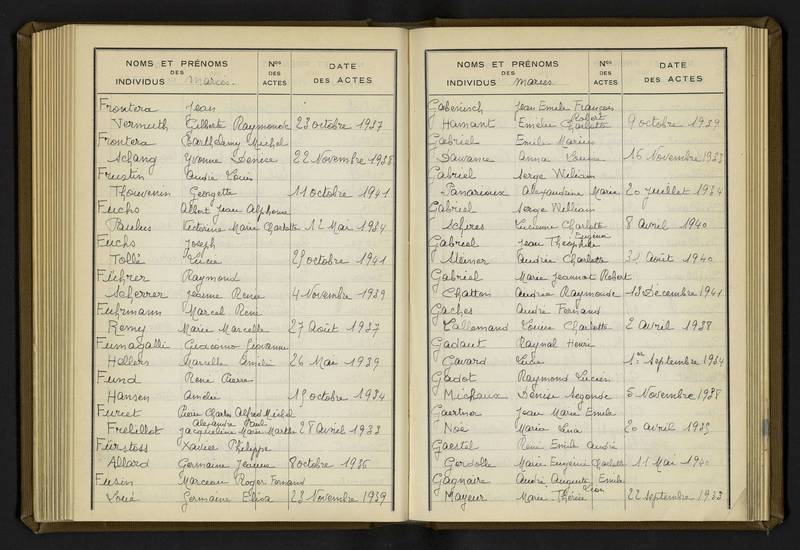 NOMS ET PRÉNOMS
DES
INDIVIDUS mariés.
Nos
DES
ACTES
DATE
DES ACTES
Frontera Jean
Vermuth Gilberte Raymonde 23 octobre 1937
Frontera Barthélemy Michel
Schang Yvonne Denise 22 Novembre 1938
Frustin André Louis
Thouvenin Georgette 11 octobre 1941
Fuchs Albert Jean Alphonse
Paulus Victorine Marie Charlotte 12 Mai 1934
Fuchs Joseph
Tollé Lucie 25 octobre 1941
Führer Raymond
Scherrer Jeanne Rena 4 Novembre 1939
Fuhrmann Marcel René
Remy Marie Marcelle 27 Août 1937
Fumagalli Giacomo Giovanni
Hellers Marcelle Amélie 26 Mai 1939
Fund René Pierre
Hansen Amélie 19 octobre 1934
Furiet Pierre Charles Alfred Michel
Alexandre Paul
Frelillot Jacqueline Marie Marthe 28 Avril 1933
Fürstoss Xavier Philippe
Allard Germaine Jeanne 8 octobre 1936
Fusin Marceau Roger Fernand
Loué Germaine Elisa 23 Novembre 1939
NOMS ET PRÉNOMS
DES
INDIVIDUS mariés
Nos
DES
ACTES
DATE
DES ACTES
Gabenisch Jean Emile François
Robert
Hamant Emélie Charlotte 9 octobre 1939
Gabriel Emile Marius
Davanne Anna Louise 16 Novembre 1933
Gabriel Serge William
Panarioux Alexandrine Marie 20 Juillet 1934
Gabriel Serge William
Schires Lucienne Charlotte 8 Avril 1940
Gabriel Jean Théophile
Eugène
Steiner Andrée Charlotte 31 Août 1940
Gabriel Marie Jeannot Robert
Chatton Andrée Raymonde 13 Decembre 1941
Gaches André Fernand
Lallemand Louise Charlotte 2 Avril 1938
Gadaut Raynal Henri
Gavard Lucie 1er Septembre 1934
Gadot Raymond Lucien
Michaux Denise Segonde 5 Novembre 1938
Gaertner Jean Marie Emile
Noé Maria Lina 20 Avril 1935
Gaestel René Emile André
Gerdolle Marie Eugénie Charlotte 11 Mai 1940
Gagnaire André Auguste Emile
Léon
Mayeur Marie-Thérèse 22 Septembre 1933